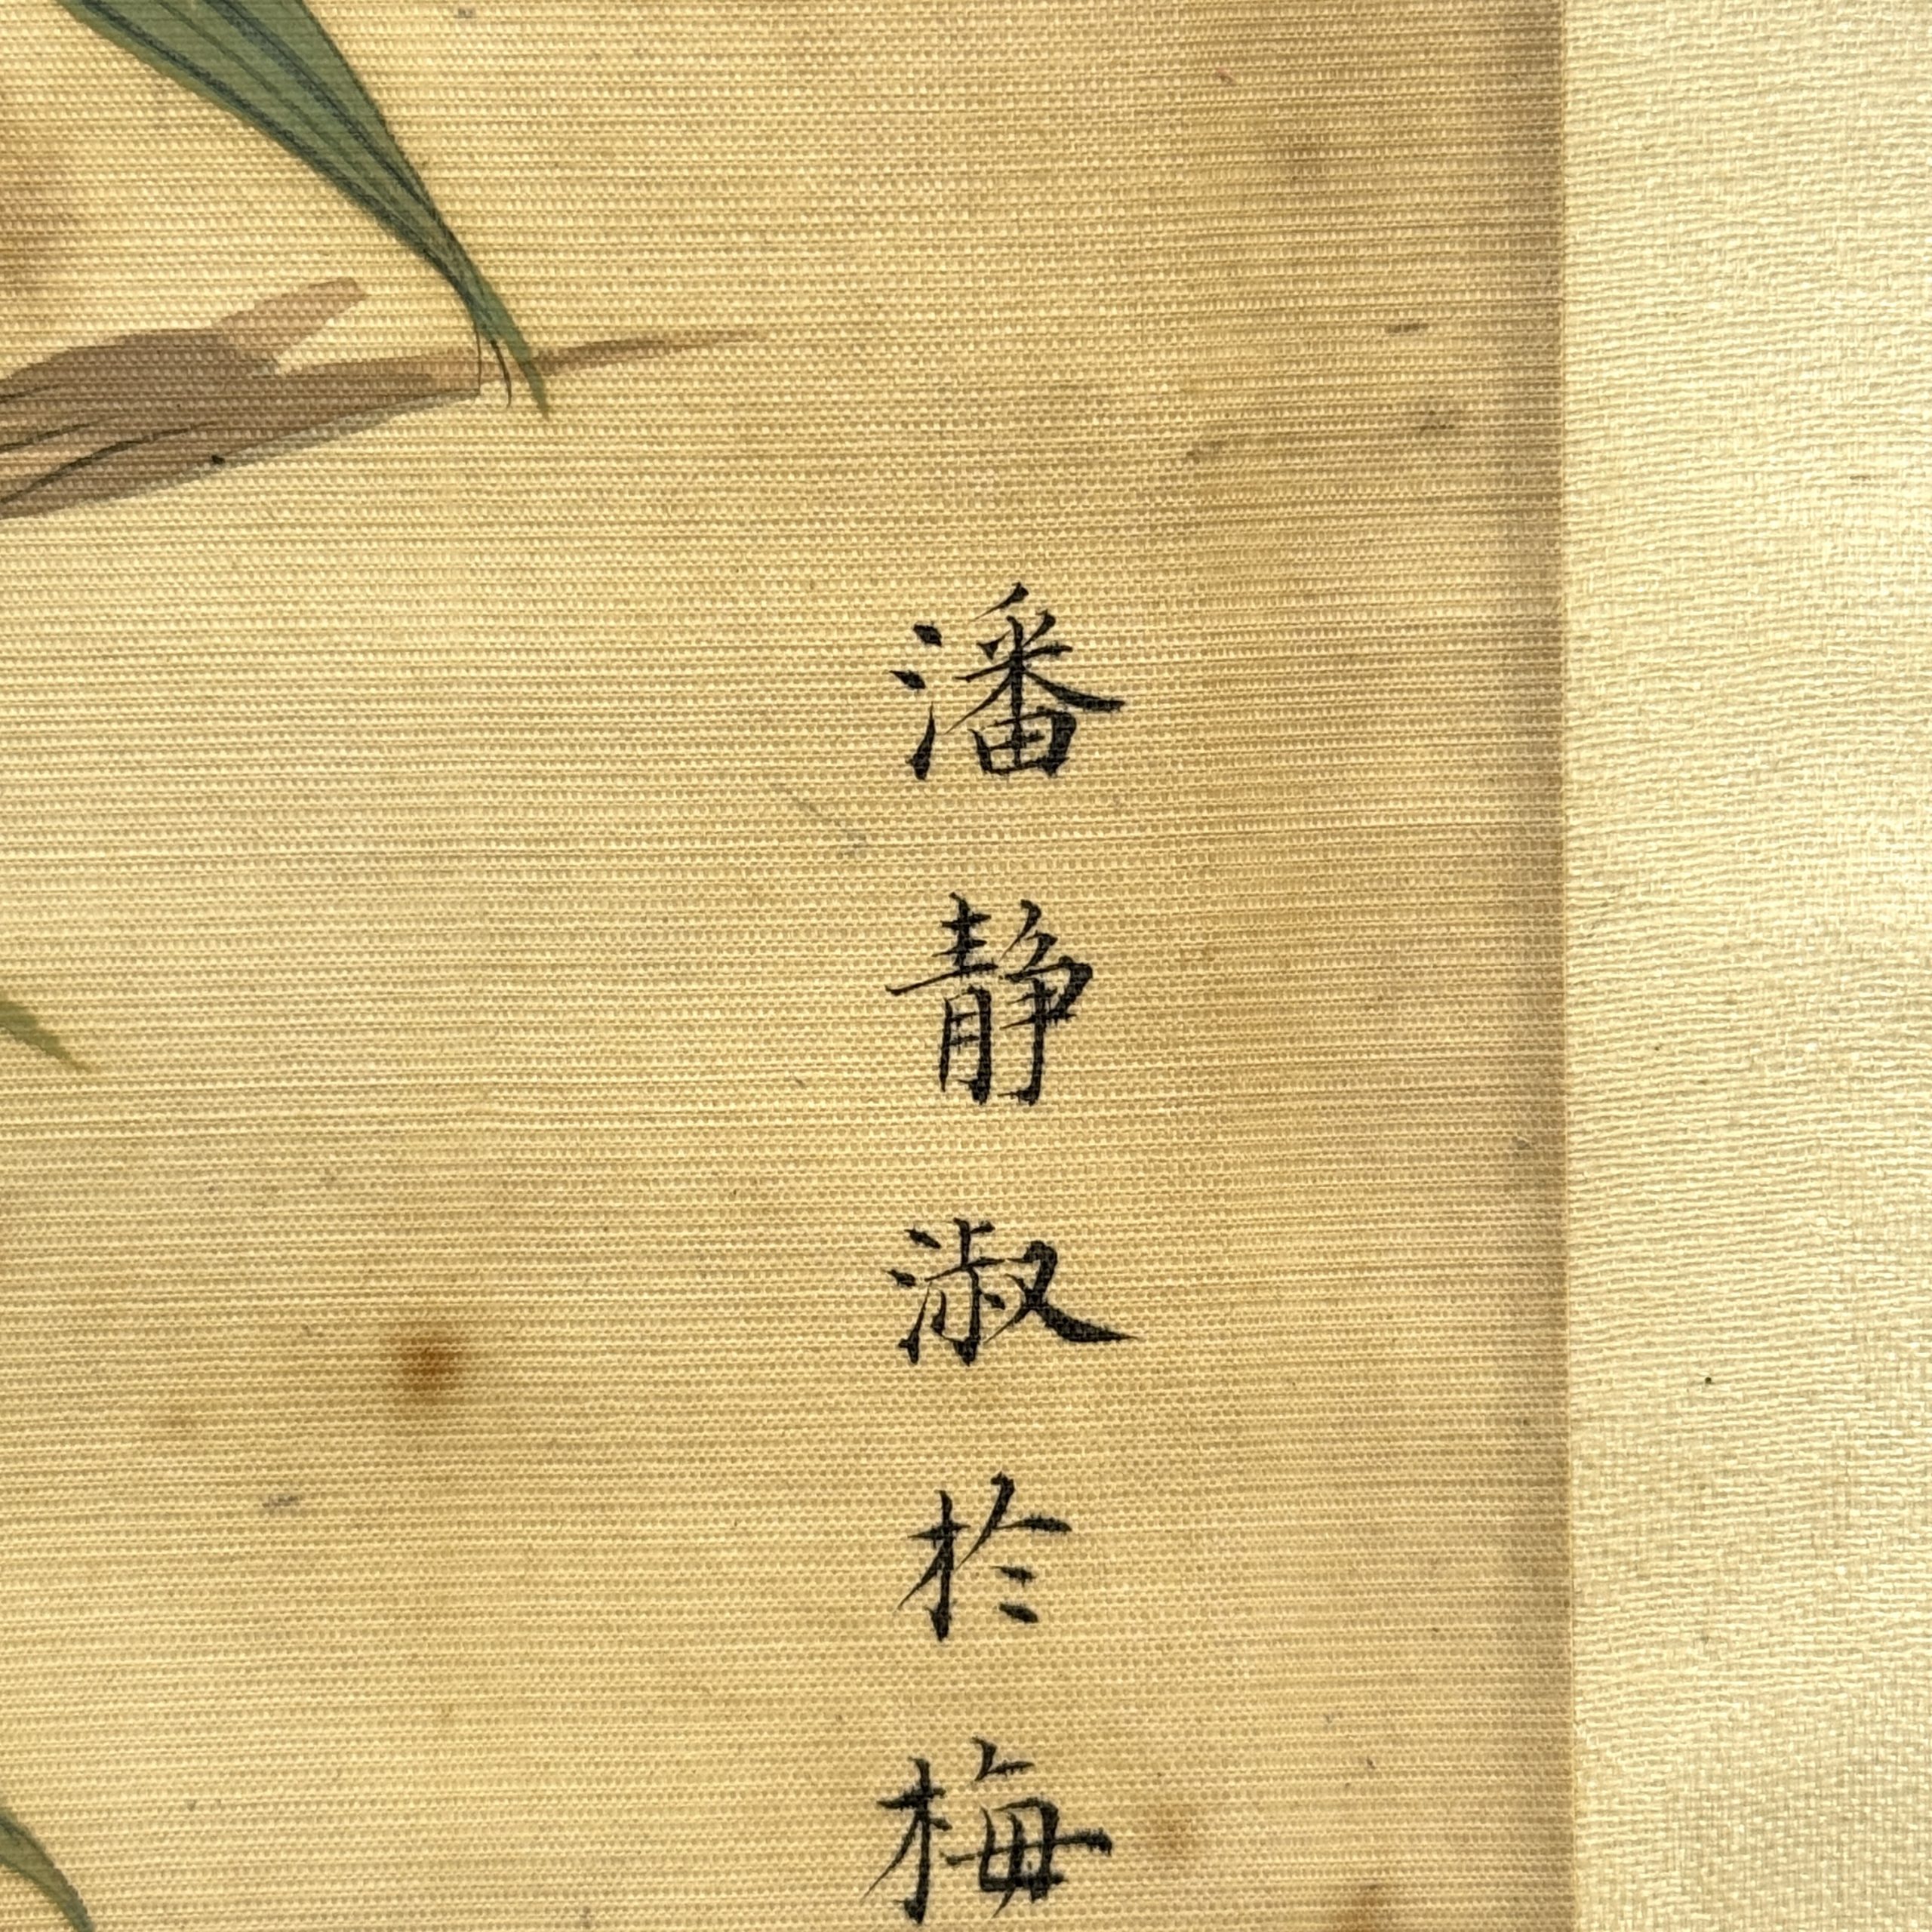 潘静淑於梅